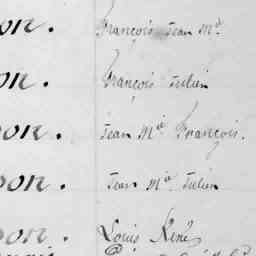 on. François Jean M.ie
on. François Julien
on. Jean M.ie François.
on. Jean M.ie Julien
on. Louis René